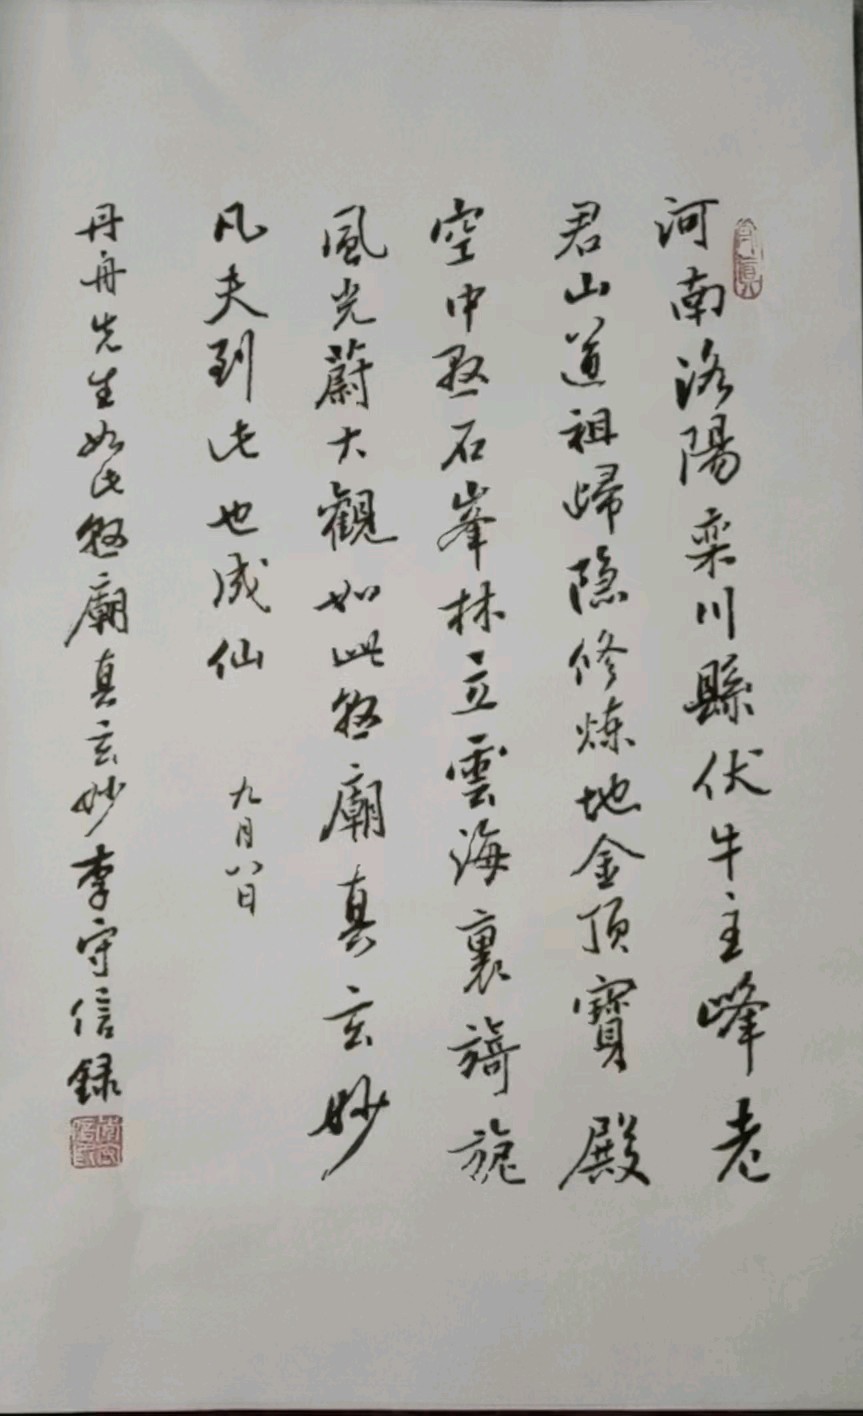 河南洛陽栾川縣伏牛主峰老
君山道祖歸隐修炼地金顶寶殿
空中悬石峯林立雲海裏旖旎
風光蔚大觀如此
廟真玄妙
凡夫到此也成仙
九月八日
丹舟先生如此
廟真玄妙李守信録